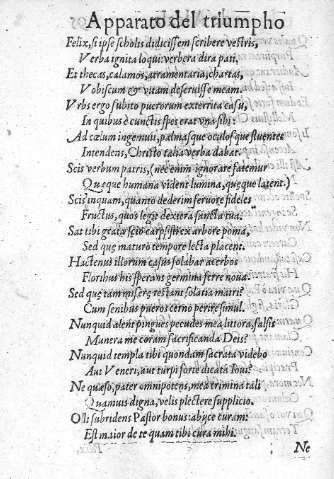 Apparato del triumpho
Felix, si ipse scholis didicissem scribere vestris,
Verba ignita loqui, verbera dira pati,
Et thecas, calamos, atramentaria, chartas,
Vobiscum & vitam deseruisse meam.
Vrbs ergo subito puerorum exterrita casu,
In quibus è cunctis spes erat vna sibi:
Ad cælum ingemuit, palmasque oculosque fluentes
Intendens, Christo talia verba dabat.
Scis verbum patris, (nec enim ignorare fatemur
Quæque humana vident lumina, quęque latent.)
Scis inquam, quanto dederim feruore fideles
Fructus, quos legit dextera sancta tua.
Sat tibi grata scio carpsisti ex arbore poma,
Sed quę maturo tempore lecta placent.
Hactenus illarum casus solabar acerbos
Floribus his sperans germina ferre noua.
Sed quę tam miserę restant solatia matri?
Cum senibus pueros cerno perire simul.
Nunquid alent pingues pecudes mea littora, falsis
Munera me coram sacrificanda Deis?
Nunquid templa tibi quondam sacrata videbo
Aut Veneri, aut turpi forte dicata Ioui?
Ne quæso, pater omnipotens, mea crimina tali
Quamuis digna, velis plectere supplicio.
Olli subridens Pastor bonus: abijce curam:
Est maior de te quam tibi cura mihi.
Ne